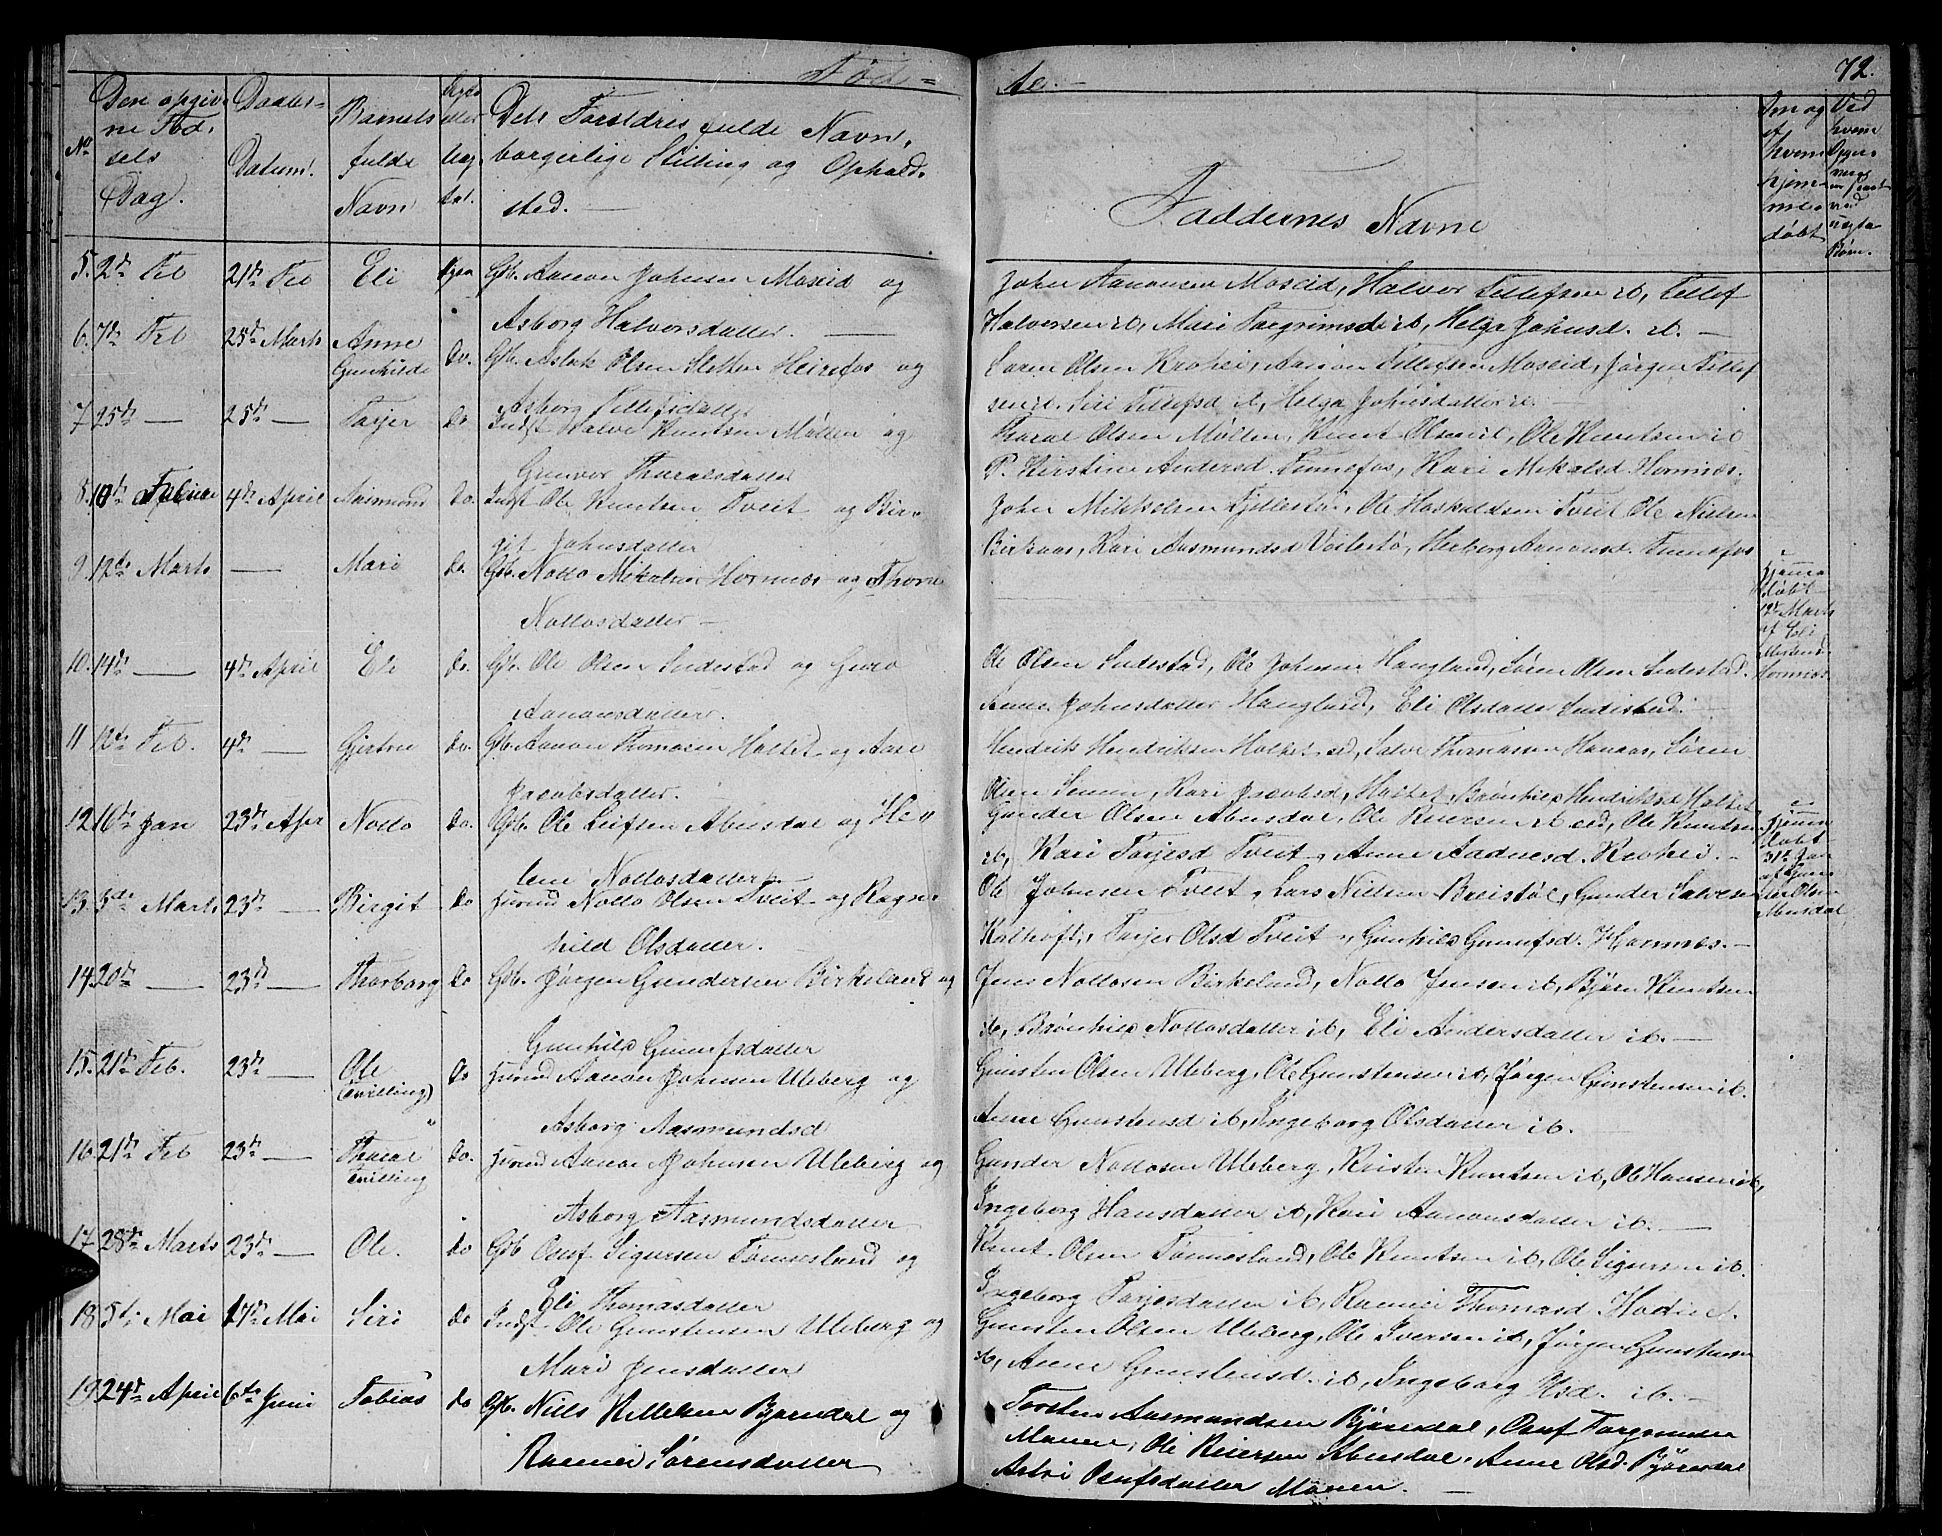 Fød= te.
72.
No
Den opgiv-
ne Fød-
sels
Dag.
Daabs-
Datum.
Barnets
fulde
Navn
Dets Forældres fulde Navn,
borgerlige Stilling og Ophold-
sted.
Faddernes Navne
hvem
hjem-
døbt
Ved
hvem
ved
uægte
Børn.
5. 2de Feb 21de Feb Eli Gb. Aanon Johnsen Moseid og
Asborg Halvorsdatter.
John Aanonsen Moseid, Halvor Tellefsen ib, Tellef
Halvorsen ib, Mari Torgrimsd ib, Helga Johnsd. ib.
6. 7de Feb 25de Marts Anne
Gunhilde Do. Gb. Aslak Olsen Sletten Heirefos og
Asborg Tellefsdatter
Olsen Kraakei, Aanon Tellefsen Moseid, Jørgen Tellef
sen ib. Siri Tellefsd ib, Helga Johnsdatter ib.
7 25de — 25de — Tarjer Do. Indst Salve Knutsen Mølten og
Gunvor Tharalsdatter
Tharal Olsen Mølten, Knut Olsen ib, Ole Knutsen ib
P. Kirstine Andersd. Fennefos, Kari Mikalsd Hornnes.
8. 10de Februar 4de April Do. Indst Ole Knutsen Tveit og Bir-
git Johnsdatter
John Mikkelsen Fjellestø, Ole Haskeldsen Tveit Ole Nielsen
Birkaas, Kari Aasmundsd Veilestø, Herborg Aanonsd. Fennefos
9. 12te Marts — Mari Do. Gb. Notto Mikalsen Hornnes og Thorn
Nottosdatter —
hjemme
døbt
12te Marts
af Eli
Hornnes
10. 14de — 4de April Eli Do. Gb. Ole Olsen Sudestad og Guro
Aanonsdatter.
Ole Olsen Sudestad, Ole Johnsen Haugland, Søren Olsen Sudestad.
Anne Johnsdatter Haugland, Eli Olsdatter Sudestad.
11 12te Feb. 4de — Gjertru Do. Gb. Aanon Thomasen Hattet og Aase
Jacobsdatter.
Hendrik Hendriksen Hattet, Salve Thomassen Hanaas, Søren
Olsen Senum, Kari Jacobsd, Hattet, Brønhild Hendriksd Hattet
12 16de Jan 23de Apr Notto Do. Gb. Ole Leifsen Abusdal og He-
lene Nottosdatter
Gunder Olsen Abusdal, Ole Reiersen ib, Ole Knutsen
ib, Kari Tarjesd Tveit, Anne Aadnesd. Kraakei.
hjemme
døbt
31te Jan
af Gun-
der Olsen
Abusdal
13. 5de Marts 23de — Birgit Do Huusmd Notto Olsen Tveit og Ragn-
hild Olsdatter.
Ole Johnsen Tveit, Lars Nielsen Breistøl, Gunder Salvesen
Kalhoft, Tarjer Olsd Tveit, Gunhild Gunufsd. Hornnes.
14. 20de — 23de — Thorborg Do Gb. Jørgen Gundersen Birkeland og
Gunhild Gunufsdatter
Jens Nottosen Birkeland, Notto Jensen ib, Bjørn Knutsen
ib, Brønhild Nottosdatter ib, Eli Andersdatter ib.
15. 21de Feb. 23de — Ole
(Tvilling) Do Huusmd Aanon Johnsen Uleberg og
Asborg Aasmundsd
Gunsten Olsen Uleberg, Ole Gunstensen ib, Jørgen Gunstensen ib.
Anne Gunstensd ib, Ingeborg Olsdatter ib.
16. 21de Feb 23de — Tharal
Tvilling Do. Huusmd Aanon Johnsen Uleberg og
Asborg Aasmundsdatter
Gunder Nottosen Uleberg, Kristen Knutsen ib, Ole Hansen ib,
Ingeborg Hansdatter ib, Kari Aanonsdatter ib.
17. 28de Marts 23de — Ole. Do Gb Osuf Sigursen Tønnesland og
Eli Thomasdatter
Knut Olsen Tønnesland, Ole Knutsen ib, Ole Sigursen ib.
Ingeborg Tarjesdatter ib, Ramei Thomasd
18. 5te Mai 17de Mai Siri Do Indst Ole Gunstensen Uleberg og
Mari Jensdatter
Gunsten Olsen Uleberg, Ole Iversen ib, Jørgen Gunstensen
ib, Anne Gunstensd. ib, Ingeborg Olsd. ib.
19. 24de April 6te Juni Tobias Do Gb. Niels Killeksen Bjørndal og
Ramei Sørensdatter
Torsten Aasmundsen Bjørndal, Osuf Torgrimsen
Monen, Ole Reiersen Abusdal, Anne Olsd. Bjørndal
Astri Osufsdatter Monen.